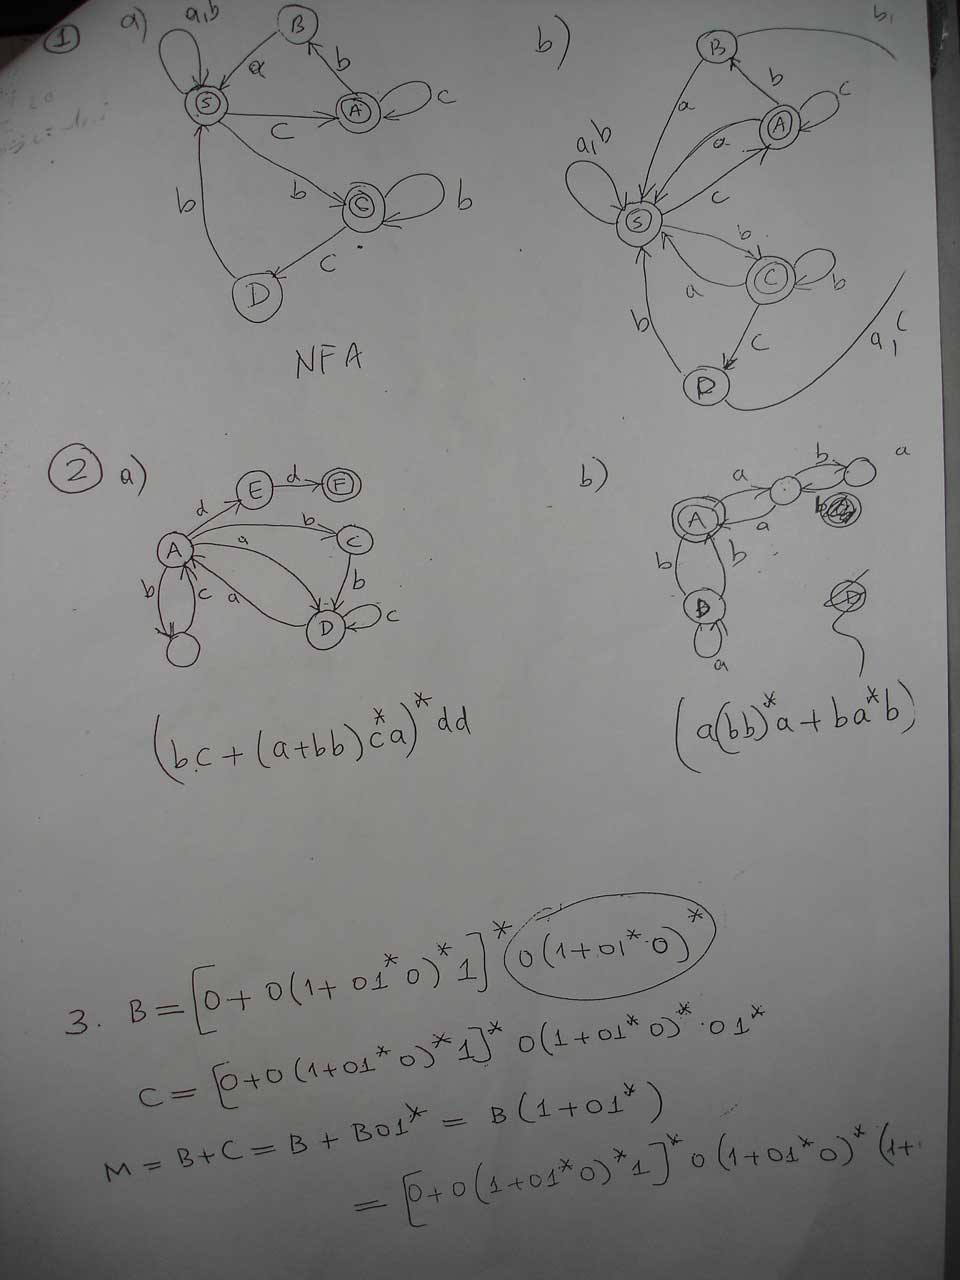 1 a)
a,b
B
a
b
S
A
c
c
b
C
b
b
c
D
NFA
b)
b,
B
b
c
a
A
a,b
a
c
S
b
C
a
b
b
c
a, c
D
2 a)
d
E
d
F
b
A
a
C
b
c
a
b
D
c
(bc + (a+bb)c*a)* dd
b)
a
b
a
A
a
b
b
b
B
a
(a(bb)*a + ba*b)
3. B = [0 + 0(1 + 01*0)*1]* 0(1 + 01*0)*
C = [0+0(1+01*0)*1]* 0(1+01*0)*·01*
M = B+C = B + B01* = B(1+01*)
= [0+0(1+01*0)*1]* 0(1+01*0)*(1+